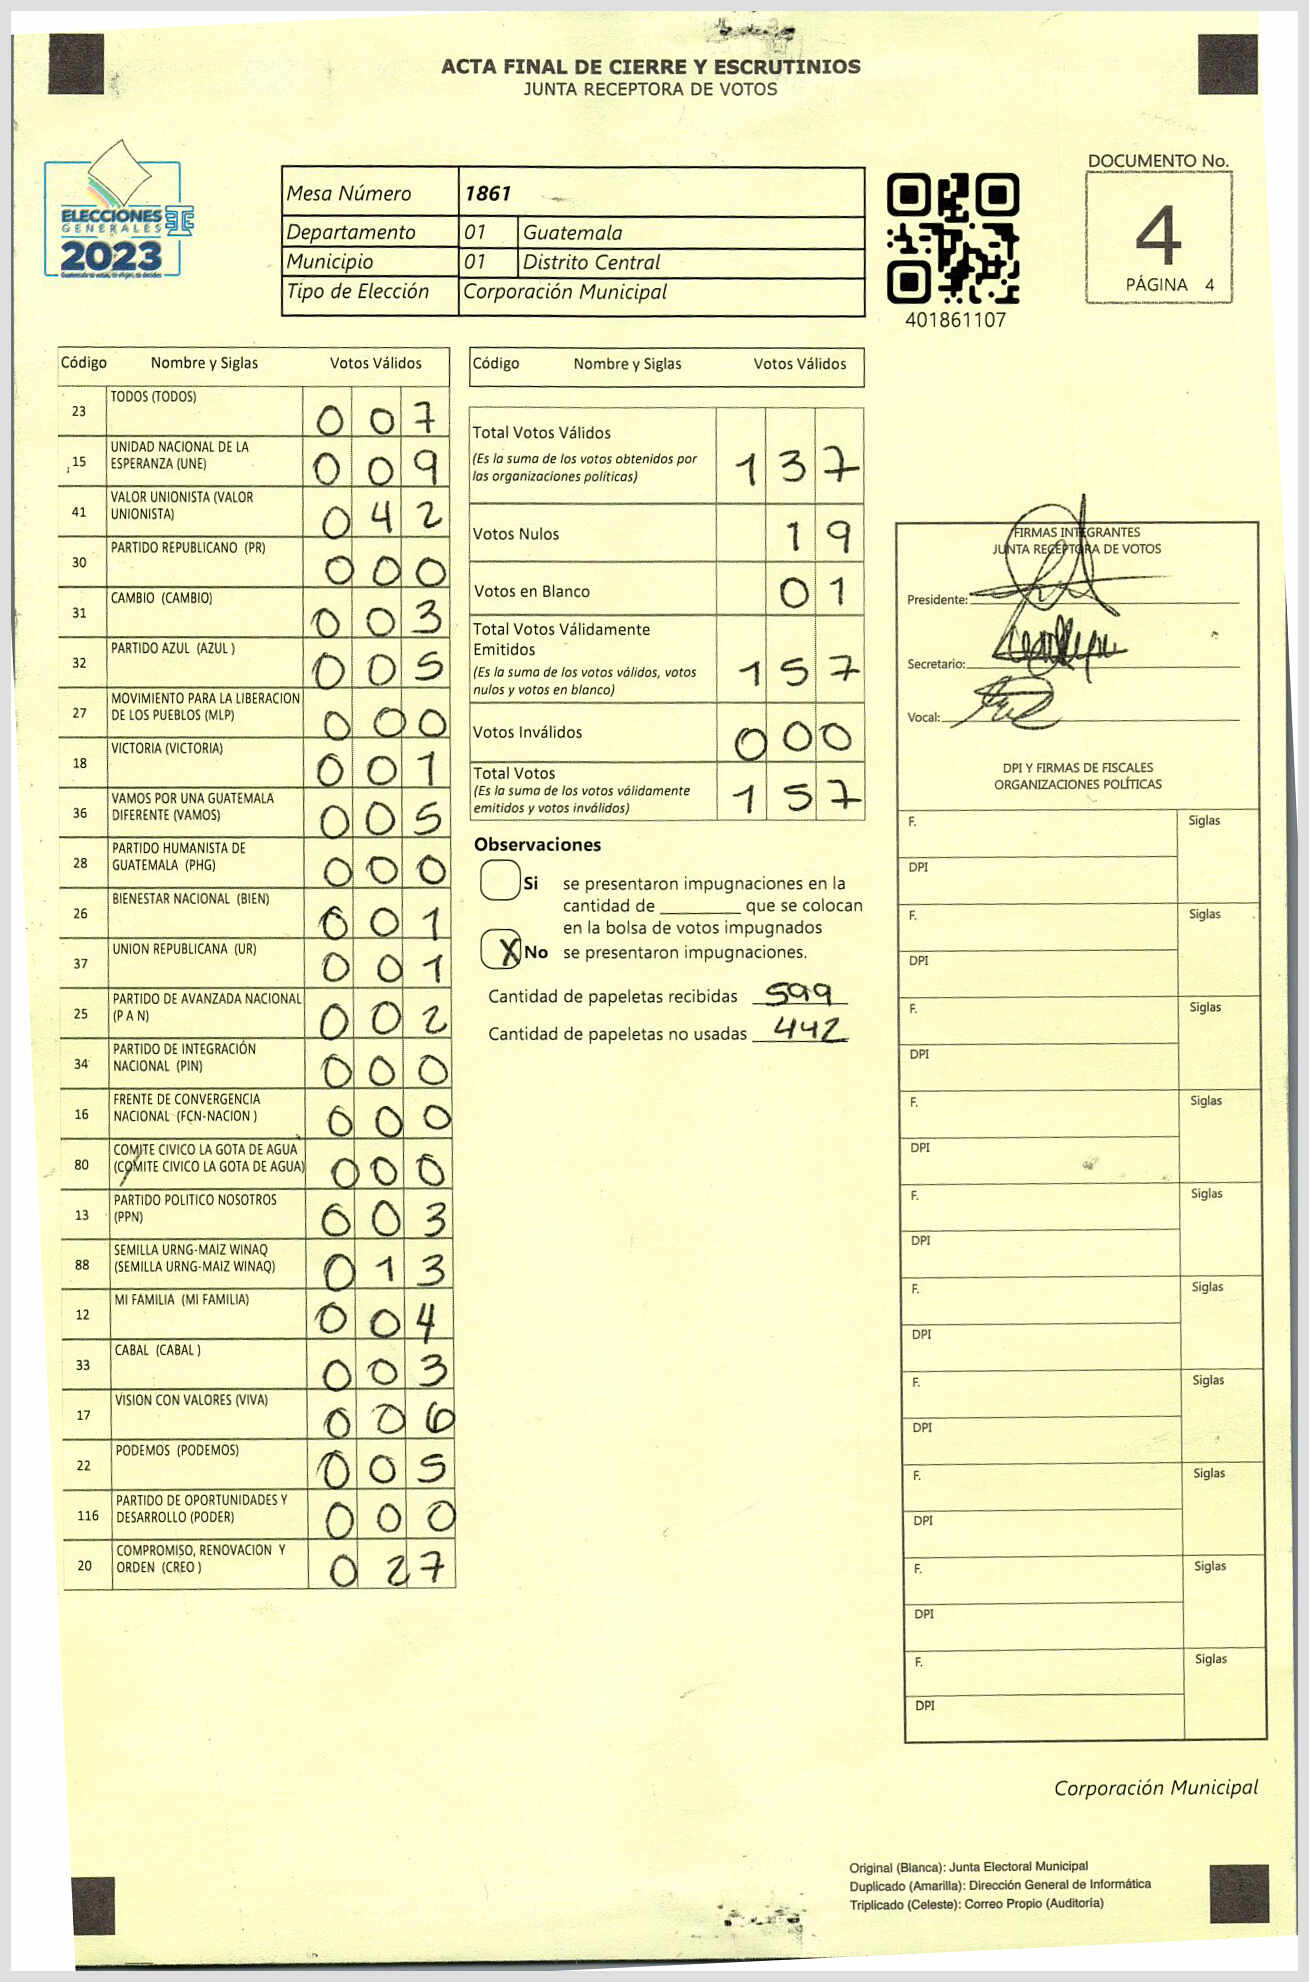 ACTA FINAL DE CIERRE Y ESCRUTINIOS
JUNTA RECEPTORA DE VOTOS
ELECCIONES
GENERALES
2023
Mesa Número 1861
Departamento 01 Guatemala
Municipio 01 Distrito Central
Tipo de Elección Corporación Municipal
401861107
DOCUMENTO No.
4
PÁGINA 4
Código Nombre y Siglas Votos Válidos
23 TODOS (TODOS) 0 0 7
15 UNIDAD NACIONAL DE LA
ESPERANZA (UNE) 0 0 9
41 VALOR UNIONISTA (VALOR
UNIONISTA) 0 4 2
30 PARTIDO REPUBLICANO (PR) 0 0 0
31 CAMBIO (CAMBIO) 0 0 3
32 PARTIDO AZUL (AZUL ) 0 0 5
27 MOVIMIENTO PARA LA LIBERACION
DE LOS PUEBLOS (MLP) 0 0 0
18 VICTORIA (VICTORIA) 0 0 1
36 VAMOS POR UNA GUATEMALA
DIFERENTE (VAMOS) 0 0 5
28 PARTIDO HUMANISTA DE
GUATEMALA (PHG) 0 0 0
26 BIENESTAR NACIONAL (BIEN) 0 0 1
37 UNION REPUBLICANA (UR) 0 0 1
25 PARTIDO DE AVANZADA NACIONAL
(P A N) 0 0 2
34 PARTIDO DE INTEGRACIÓN
NACIONAL (PIN) 0 0 0
16 FRENTE DE CONVERGENCIA
NACIONAL (FCN-NACION ) 0 0 0
80 COMITE CIVICO LA GOTA DE AGUA
(COMITE CIVICO LA GOTA DE AGUA) 0 0 0
13 PARTIDO POLITICO NOSOTROS
(PPN) 0 0 3
88 SEMILLA URNG-MAIZ WINAQ
(SEMILLA URNG-MAIZ WINAQ) 0 1 3
12 MI FAMILIA (MI FAMILIA) 0 0 4
33 CABAL (CABAL ) 0 0 3
17 VISION CON VALORES (VIVA) 0 0 6
22 PODEMOS (PODEMOS) 0 0 5
116 PARTIDO DE OPORTUNIDADES Y
DESARROLLO (PODER) 0 0 0
20 COMPROMISO, RENOVACION Y
ORDEN (CREO ) 0 2 7
Código Nombre y Siglas Votos Válidos
Total Votos Válidos
(Es la suma de los votos obtenidos por
las organizaciones políticas) 1 3 7
Votos Nulos 1 9
Votos en Blanco 0 1
Total Votos Válidamente
Emitidos
(Es la suma de los votos válidos, votos
nulos y votos en blanco) 1 5 7
Votos Inválidos 0 0 0
Total Votos
(Es la suma de los votos válidamente
emitidos y votos inválidos) 1 5 7
Observaciones
Si se presentaron impugnaciones en la
cantidad de ________ que se colocan
en la bolsa de votos impugnados
X No se presentaron impugnaciones.
Cantidad de papeletas recibidas 599
Cantidad de papeletas no usadas 442
FIRMAS INTEGRANTES
JUNTA RECEPTORA DE VOTOS
Presidente:
Secretario:
Vocal:
DPI Y FIRMAS DE FISCALES
ORGANIZACIONES POLÍTICAS
F. Siglas
DPI
F. Siglas
DPI
F. Siglas
DPI
F. Siglas
DPI
F. Siglas
DPI
F. Siglas
DPI
F. Siglas
DPI
F. Siglas
DPI
F. Siglas
DPI
F. Siglas
DPI
Corporación Municipal
Original (Blanca): Junta Electoral Municipal
Duplicado (Amarilla): Dirección General de Informática
Triplicado (Celeste): Correo Propio (Auditoría)